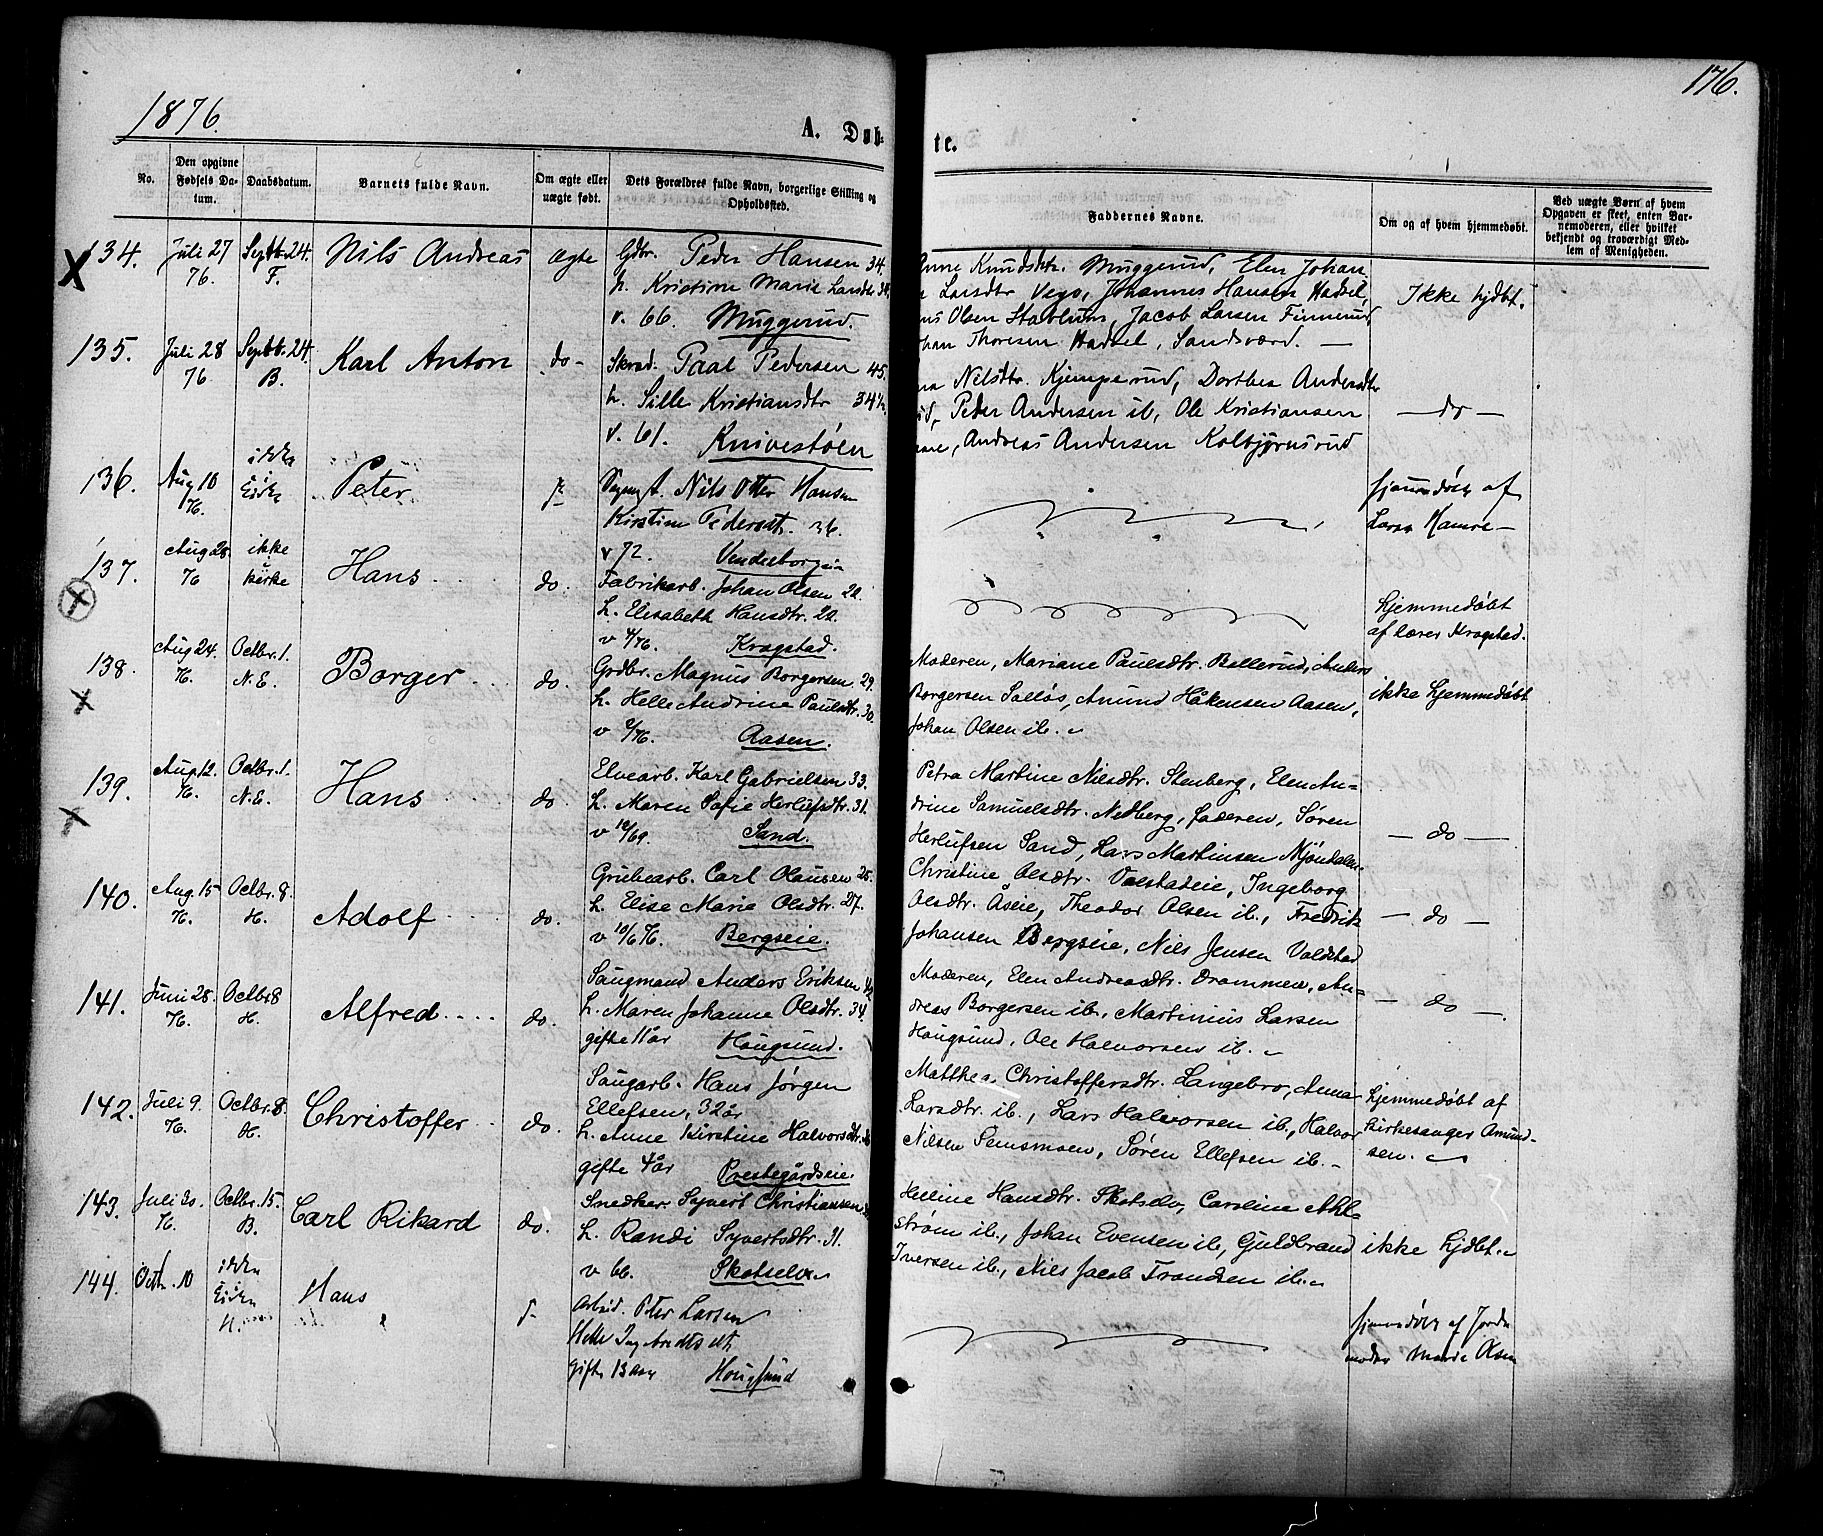 1876.
176.
A. Døb-
te.
No.
Den opgivne Fødsels Da-
tum.
Daabsdatum.
Barnets fulde Navn.
Om ægte eller
uægte født.
Dets Forældres fulde Navn, borgerlige Stilling og
Opholdssted.
Faddernes Navne.
Om og af hvem hjemmedøbt.
Ved uægte Børn af hvem
Opgaven er skeet, enten Bar-
nemoderen, eller hvilket
bekjendt og troværdigt Med-
lem af Menigheden.
134. Juli 27 76. Septbr. 24. F. Nils Andreas ægte
Gdbr. Peder Hansen 34.
h. Kristine Marie Larsdtr
v. 66. Muggerud.
Anne Knudsdtr. Muggerud, Elen Johan
Larsdtr Vego, Johannes Hansen Hadsel,
Olsen Stavlum, Jacob Larsen Finnerud,
Thoresen Hadsel, Sandsværd. —
Ikke hjdbt.
135. Juli 28 76. Septbr. 24. B. Karl Anton do-
Paal Pedersen 45.
h. Sille Kristiansdtr 34½
v. 61. Knivestøen
Nilsdtr. Kjemperud, Dorthea Andersdtr
Peder Andersen ib, Ole Kristiansen
Andreas Andersen Kolbjørnsrud
— do —
136. Aug 10 76. ikke Kirke Peter
Nils Otter Hansen
Kirstine Pedersdt. 36.
v 72.
hjemmedøbt af
Hamre —
137. Aug 28. 76 ikke kirke Hans do.
Fabrikarb. Johan Olsen 22.
h. Elisabeth Hansdtr. 22.
v 4/76. Kragstad.
hjemmedøbt
af lærer Kragstad.
138. Aug 24. 76. Octbr. 1. N.E. Borger do.
Grdbr. Magnus Borgersen 29.
h. Helle Andrine Paulsdtr. 30.
v 2/76. Aasen.
Moderen, Mariane Paulsdtr. Bollerud, Anders
Borgersen Solløs, Amund Håkensen Aasen,
Johan Olsen ib.
ikke hjemmedøbt
139. Aug. 12. 76. Octbr. 1. N.E. Hans do.
Elvearb. Karl Gabrielsen 33.
h. Maren Sofie Herlufsdtr. 31.
v 12/69. Sand.
Petra Martine Nilsdtr. Stenberg, Elen An-
drine Samuelsdtr. Nedberg, faderen, Søren
Herlufsen Sand, Lars Martinsen Mjøndalen
— do —
140. Aug. 15 76. Octbr. 8. H. Adolf do.
Grubearb. Carl Olausen 25.
h. Elise Marie Olsdtr. 27.
v 10/6 76. Bergseie.
Christine Olsdtr. Valstadeie, Ingeborg
Olsdtr. Åseie, Theodor Olsen ib., Fredrik
Johansen Bergseie, Nils Jensen Valstad
— do —
141. Juni 28. 76. Octbr 8 H. Alfred do.
Saugmand Anders Eriksen 42
h. Maren Johanne Olsdtr. 34.
gifte 11 år Hougsund.
Moderen, Elen Andreasdtr. Drammen, An-
dreas Borgersen ib., Martinius Larsen
Hougsund, Ole Halvorsen ib.
— do —
142. Juli 9. 76. Octbr. 8. H. Christoffer do.
Saugarb. Hans Jørgen
Ellefsen, 32 år
h. Anne Kirstine Halvorsdtr.
gifte 4 år Prestegårdseie
Matthea Christoffersdtr. Langebro, Anna
Larsdtr. ib., Lars Halvorsen ib., Halvor
Nilsen Semsmoen, Søren Ellefsen ib.
hjemmedøbt af
kirkesanger Amund-
sen.
143. Juli 30. 76. Octbr. 15. B. Carl Rikard do.
Snedker Syvert Christiansen
h. Randi Syvertsdtr. 31.
v 66. Skotselv
Helline Hansdtr. Skotselv, Caroline Ahl-
strøm ib., Johan Evensen ib, Guldbrand
Iversen ib., Nils Jacob Trondsen ib.
ikke hjdbt.
144. Octbr. 10 ikke Kirke H. Hans
Arbeid. Peter Larsen
Helle Ingebretsdt
gifte 13 Aar Hougsund
hjemmedøbt af Jorde
moder Marie Olsen